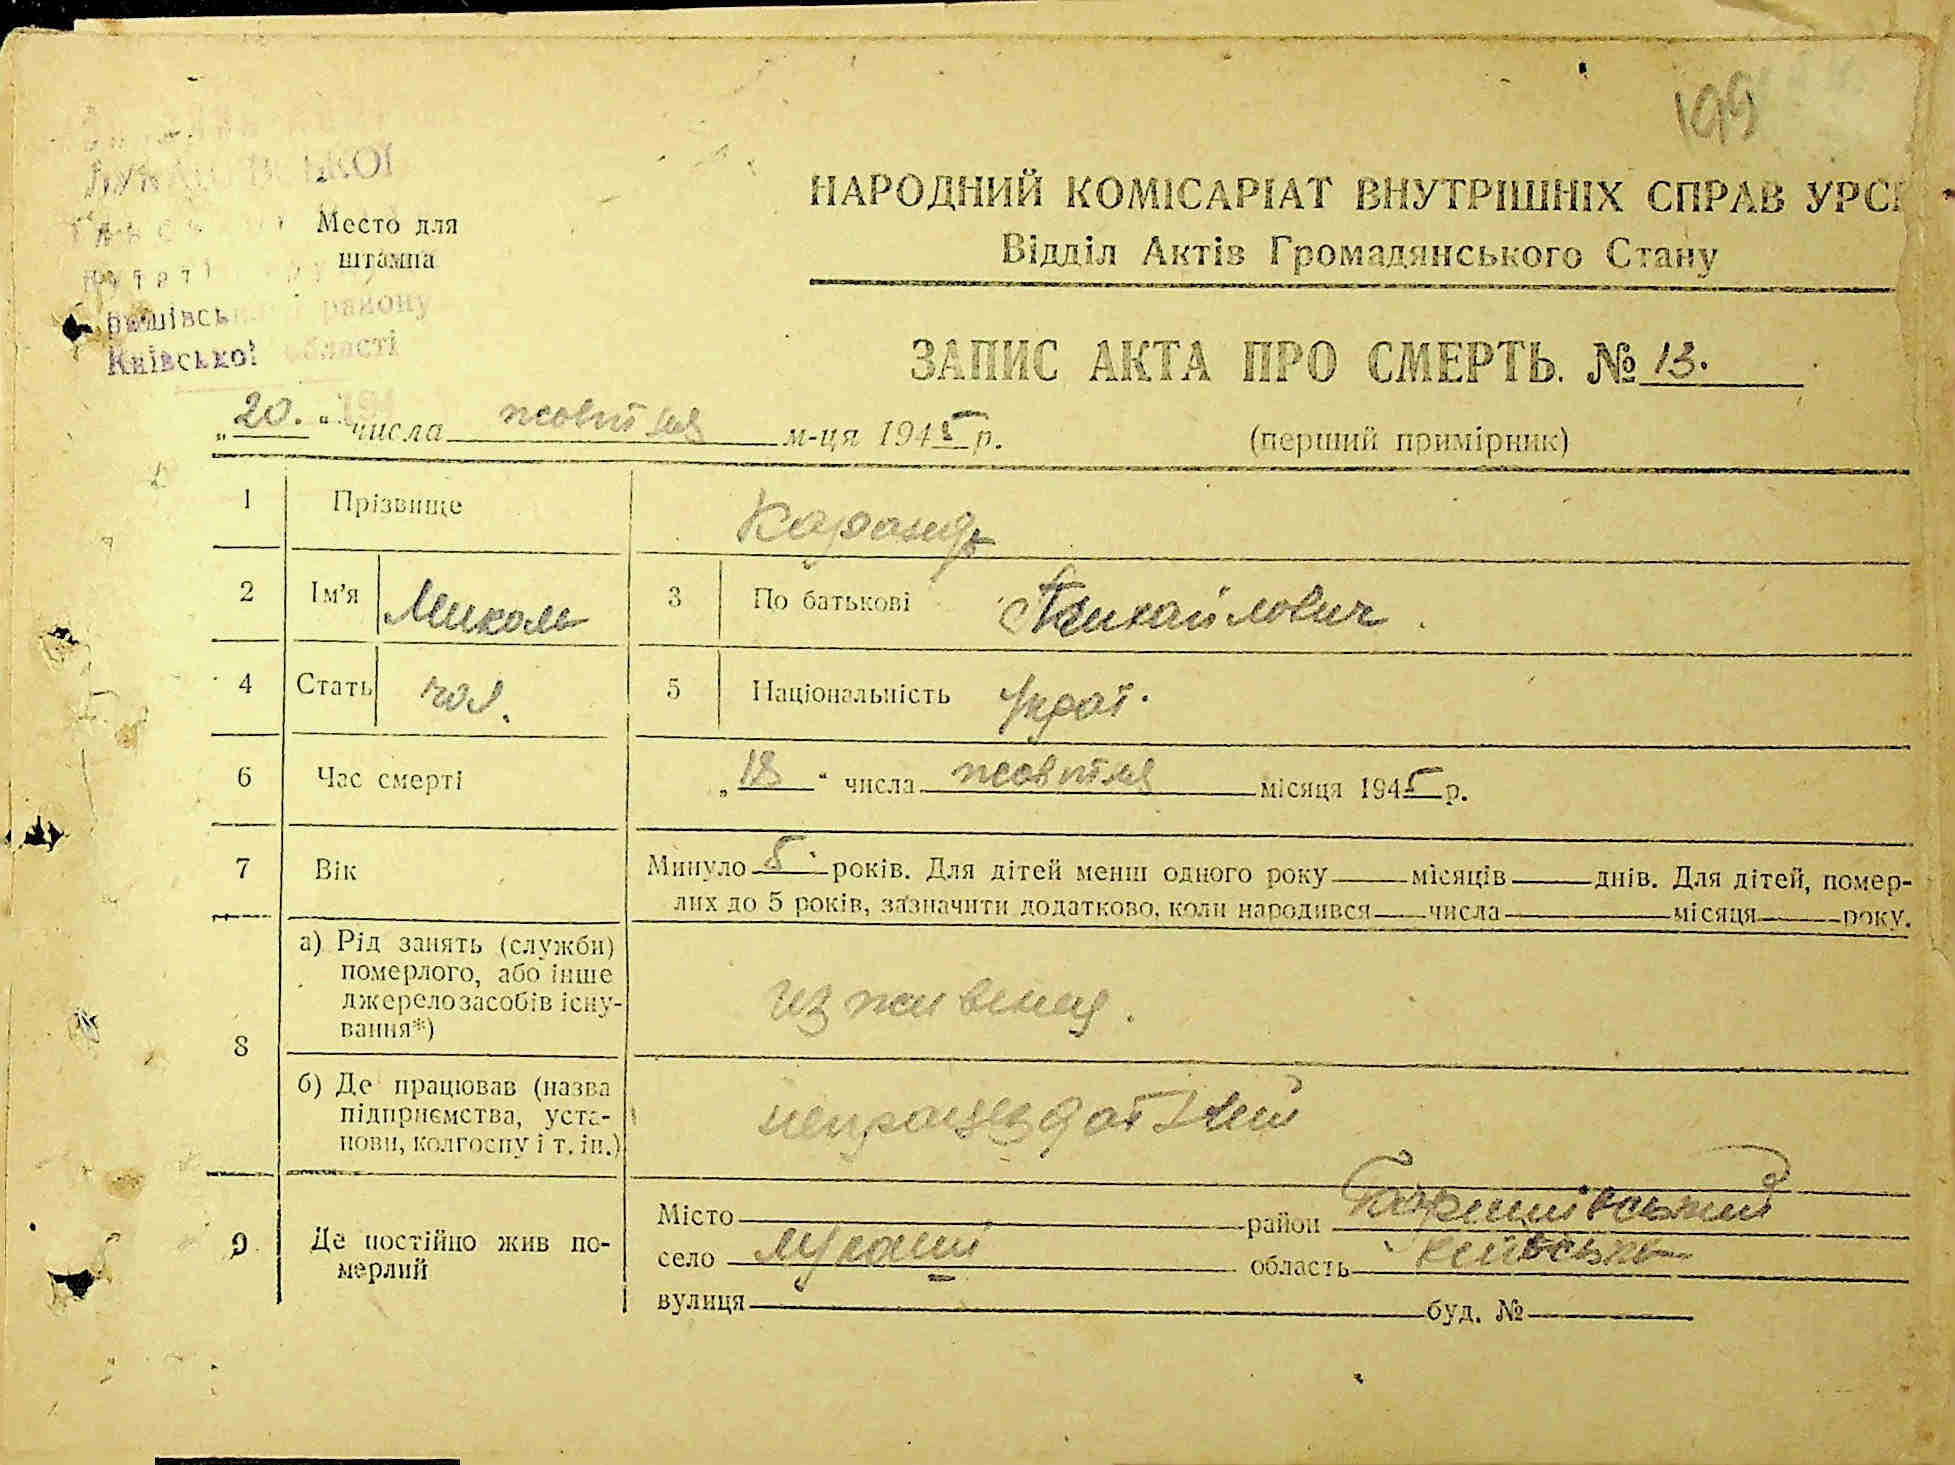 199
ЛУКАШІВСЬКОЇ
Место для
штампа
району
Київської області
НАРОДНИЙ КОМІСАРІАТ ВНУТРІШНІХ СПРАВ УРСР
Відділ Актів Громадянського Стану
ЗАПИС АКТА ПРО СМЕРТЬ. № 13.
„20.“ числа жовтня м-ця 1945 р.
(перший примірник)
1 Прізвище
2 Ім'я Микола 3 По батькові Михайлович
4 Стать чол. 5 Національність Украї.
6 Час смерті „18“ числа жовтня місяця 1945 р.
7 Вік Минуло 8 років. Для дітей менш одного року місяців днів. Для дітей, помер-
лих до 5 років, зазначити додатково, коли народився числа місяця року.
8 а) Рід занять (служби)
померлого, або інше
джерело засобів існу-
вання*)
б) Де працював (назва
підприємства, уста-
нови, колгоспу і т. ін.)
непрацездатний
9 Де постійно жив по-
мерлий
Місто район Баришівський
село Лукаші область Київська
вулиця буд. №